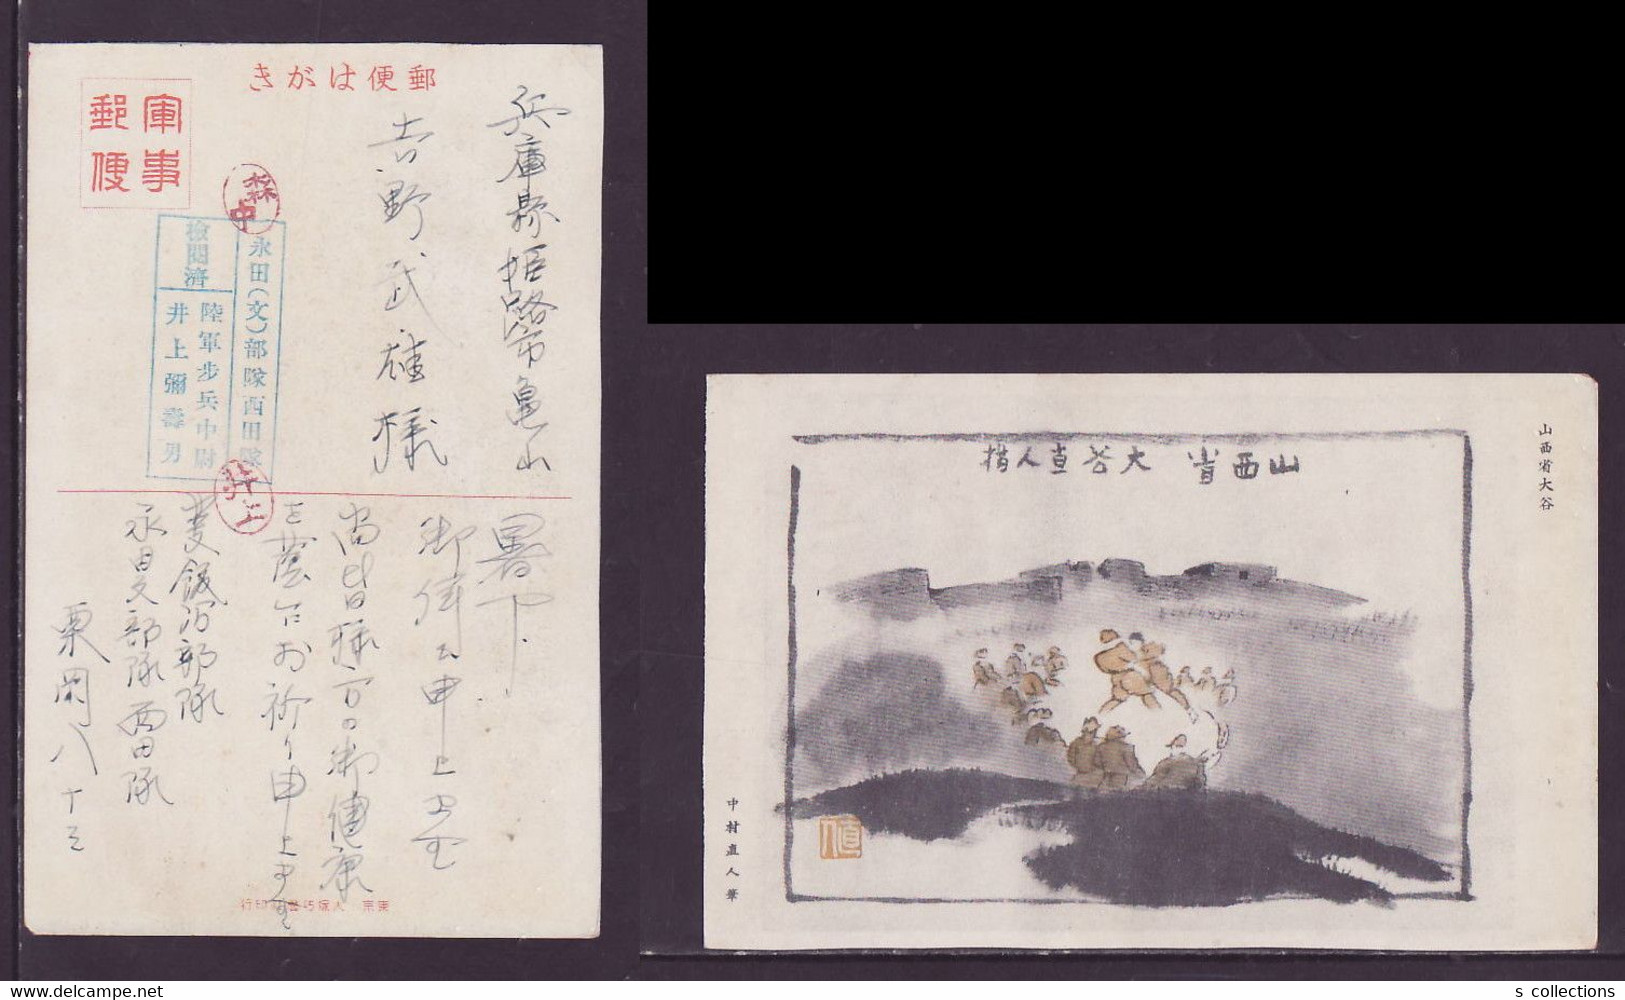 郵便はがき
軍事
郵便
森
中
永田(文)部隊西田隊
検閲濟
陸軍步兵中尉
井上彌壽男
井上
兵庫縣姫路市亀山
吉野武雄様
暑下、
御伺ひ申上候
御健康
お祈り申上候
部隊
永田文部隊西田隊
栗岡八十三
東京 大塚巧藝社印行
山西省 大谷直人措
山西省大谷
中村直人筆
直人
s collections